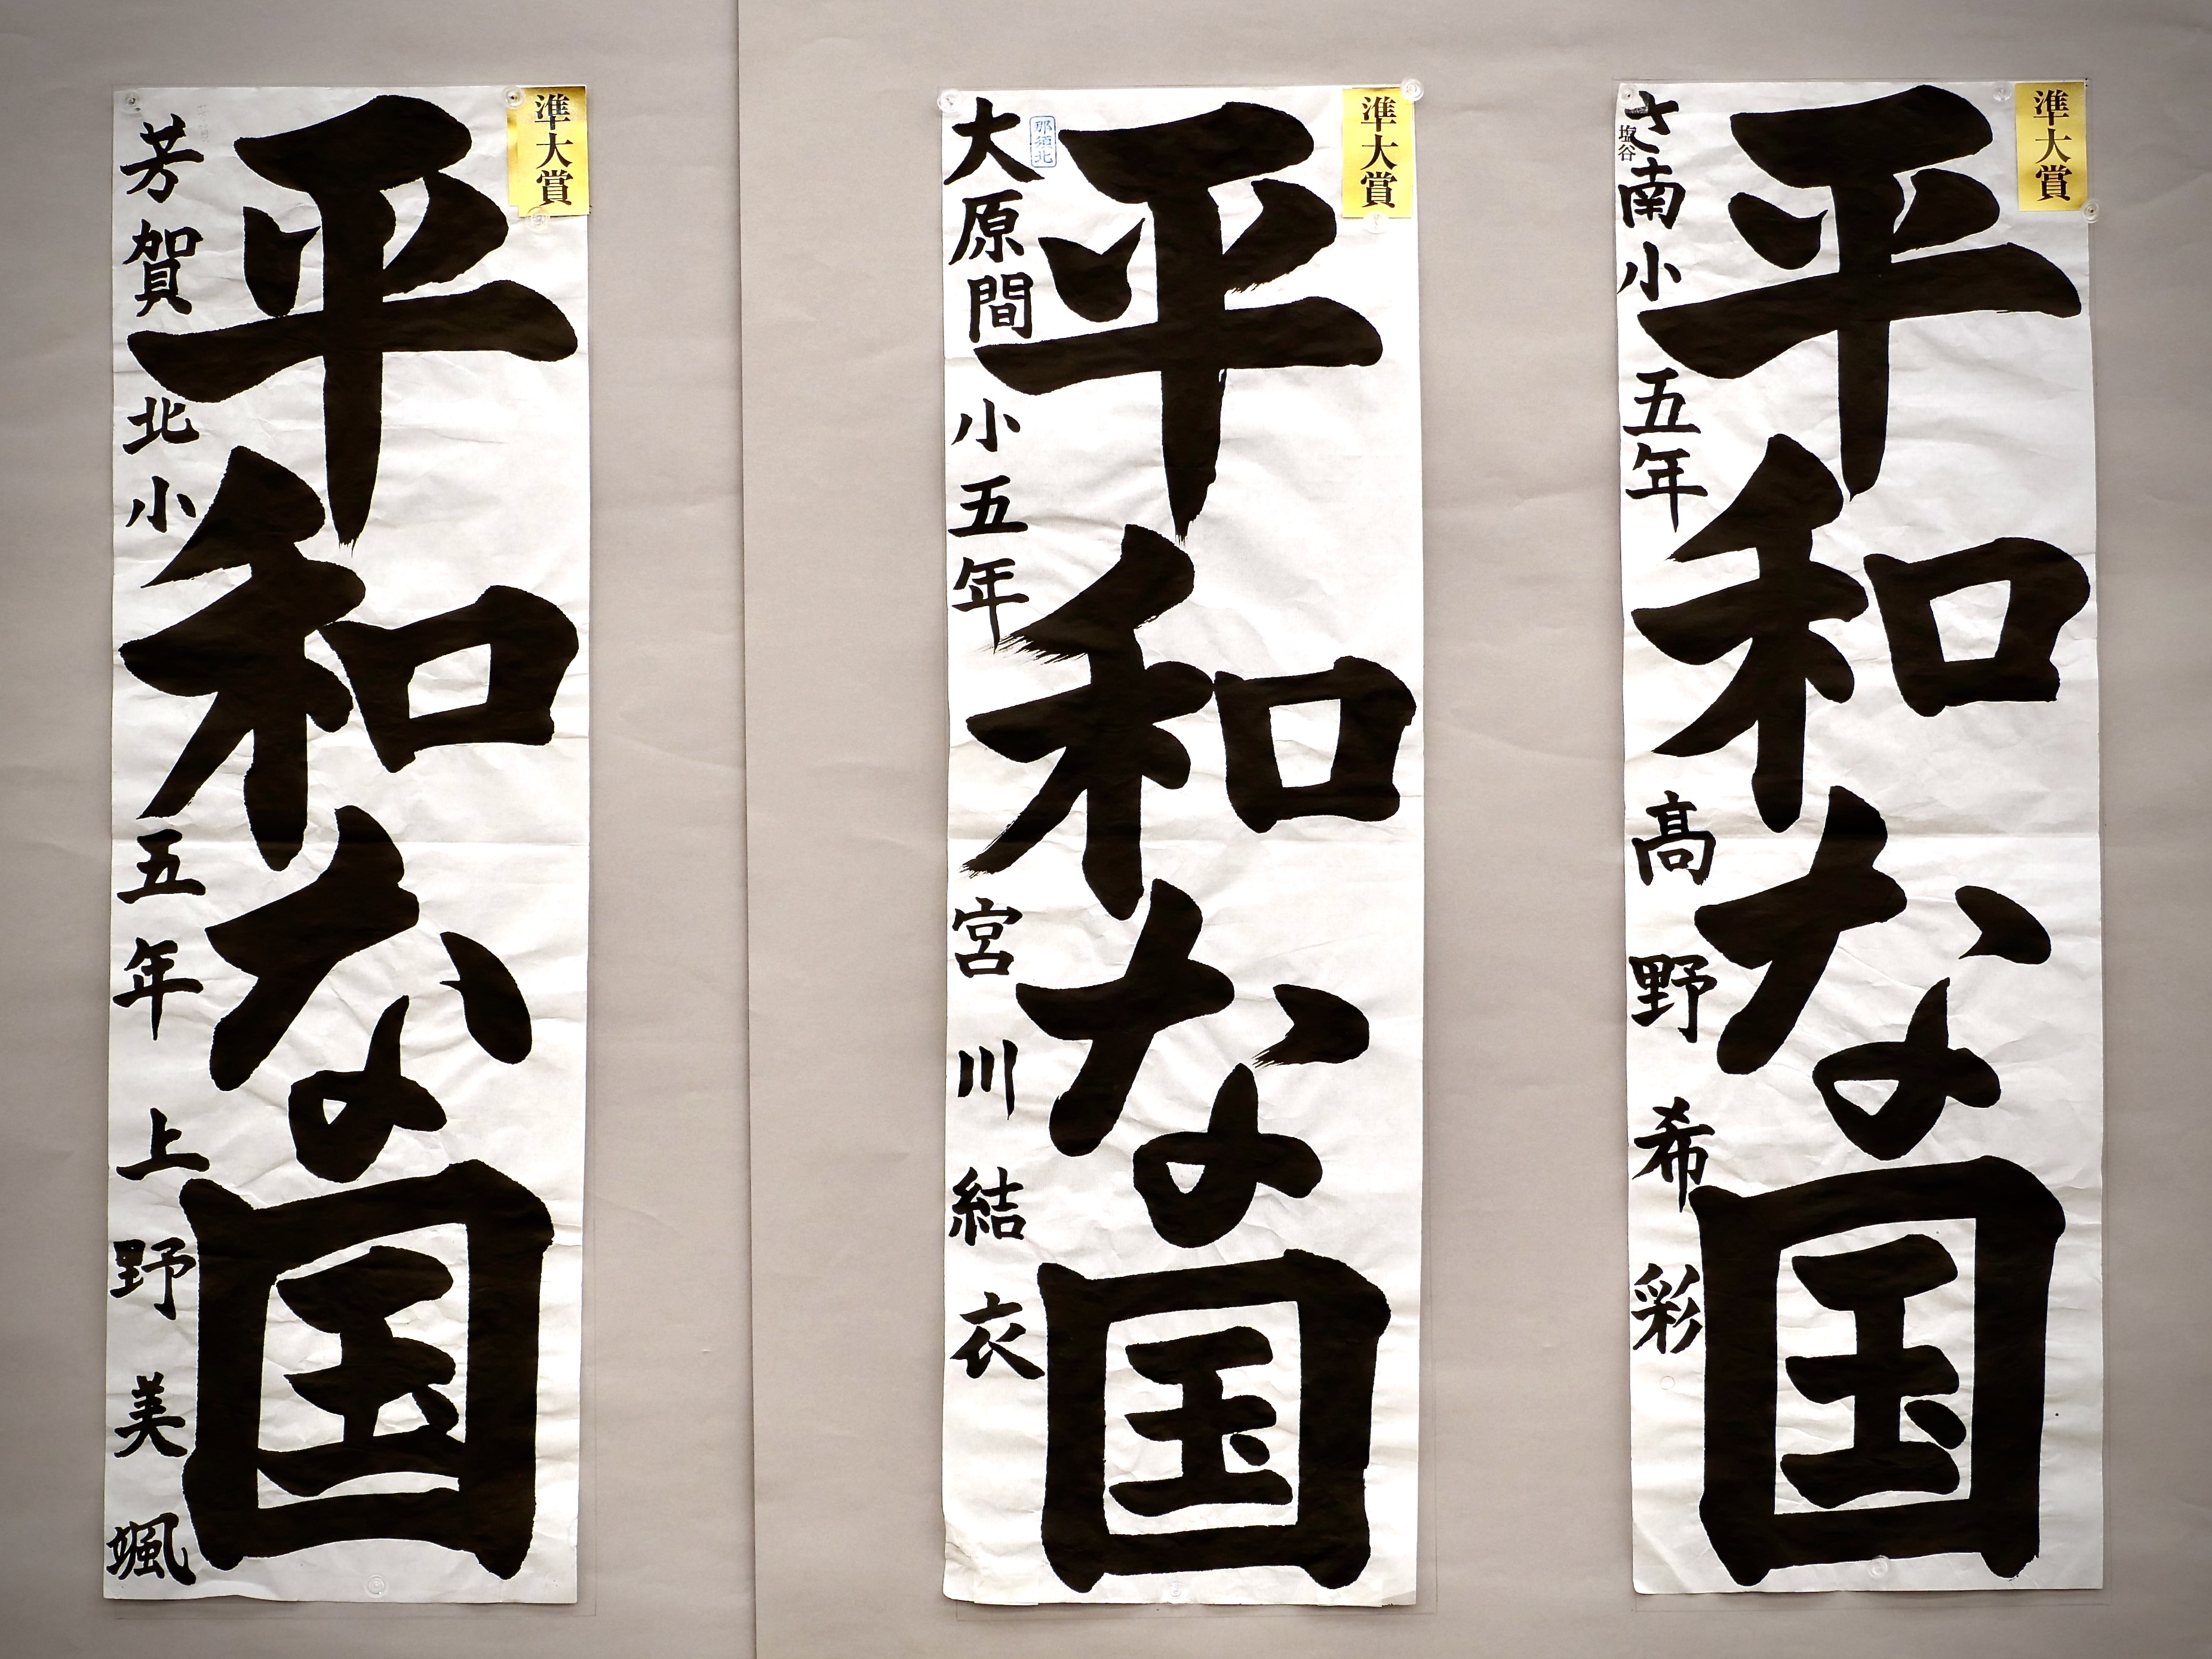 準大賞
平和な国
芳賀北小 五年 上野美颯
準大賞
平和な国
那須北
大原間小五年 宮川結衣
準大賞
平和な国
塩谷
さ南小 五年 髙野希彩